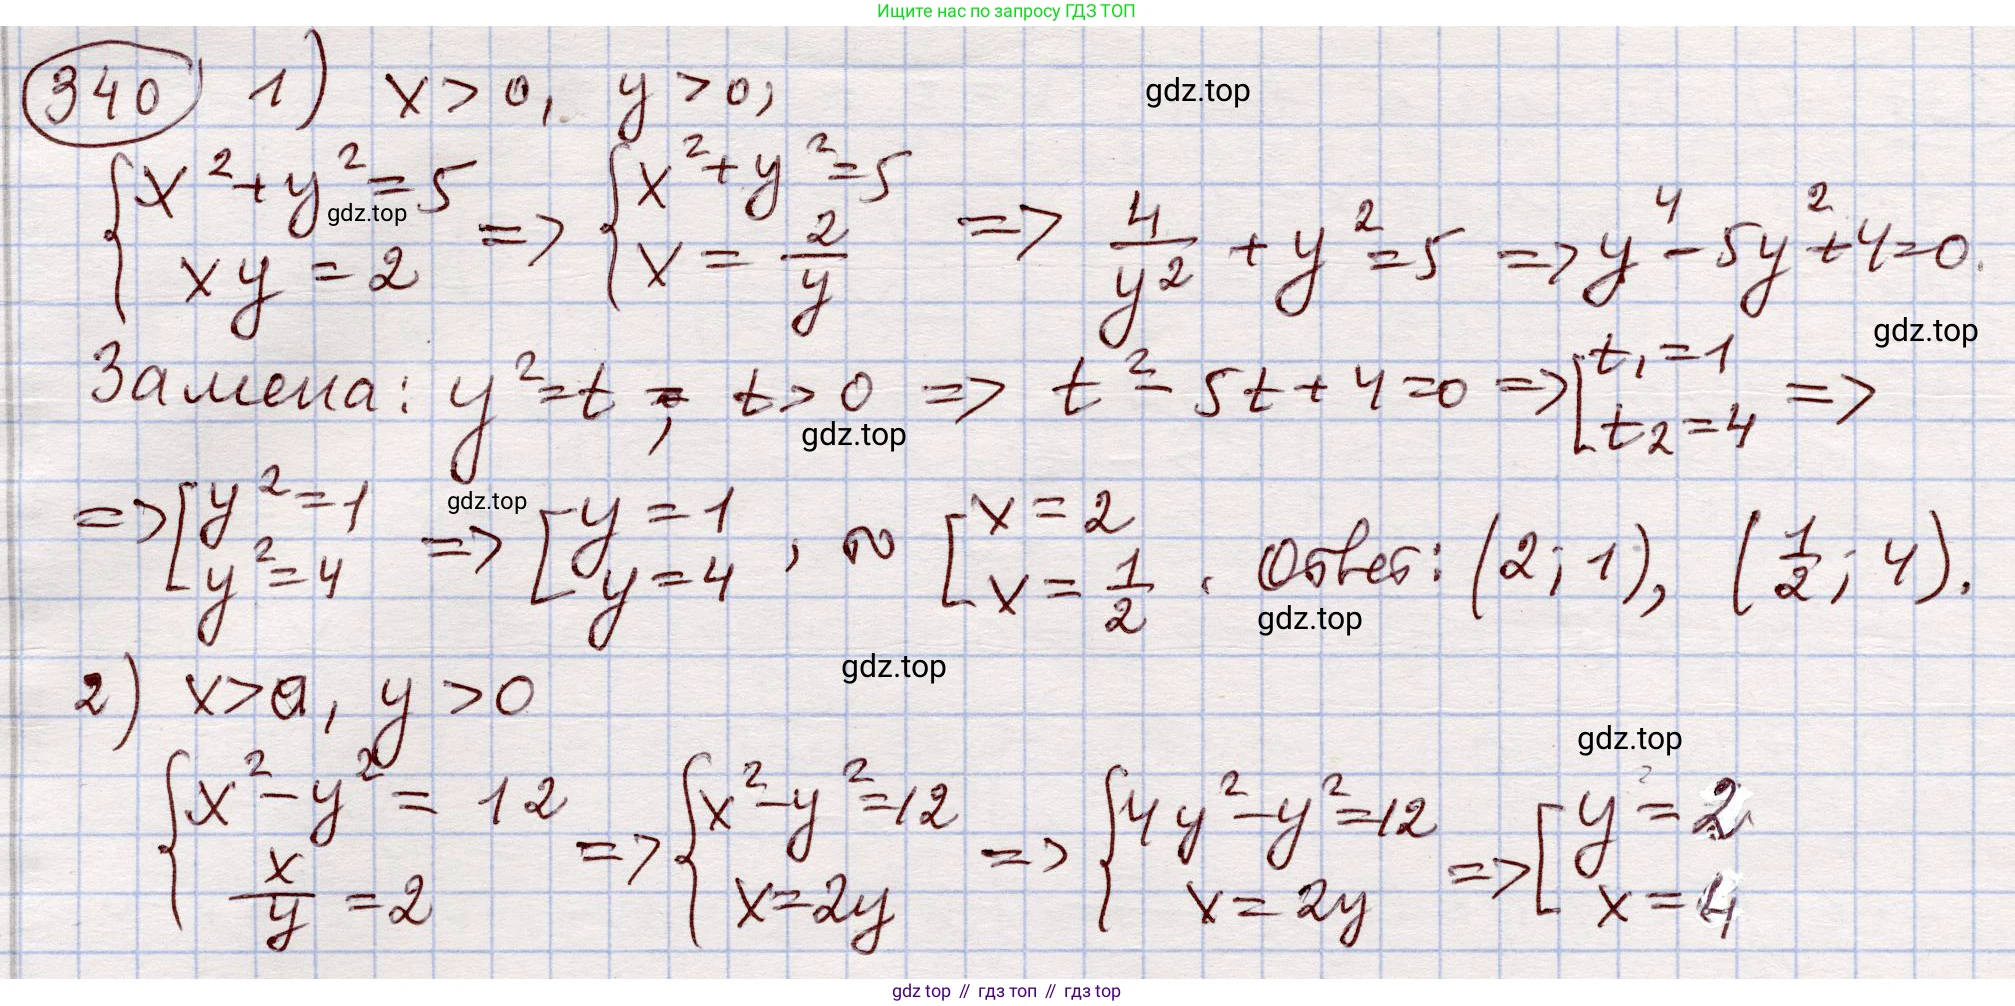 Ищите нас по запросу ГДЗ ТОП
340 1) x > 0, y > 0; gdz.top
{ x² + y² = 5 ; xy = 2 => { x² + y² = 5 ; x = 2/y => 4/y² + y² = 5 => y⁴ - 5y² + 4 = 0.
gdz.top
gdz.top
Замена: y² = t, t > 0 => t² - 5t + 4 = 0 => [ t₁ = 1 ; t₂ = 4 =>
gdz.top
=> [ y² = 1 ; y² = 4 => [ y = 1 ; y = 4 , ~ [ x = 2 ; x = 1/2 . Ответ: (2; 1), (1/2; 4).
gdz.top
gdz.top
gdz.top
2) x > 0, y > 0
gdz.top
{ x² - y² = 12 ; x/y = 2 => { x² - y² = 12 ; x = 2y => { 4y² - y² = 12 ; x = 2y => [ y = 2 ; x = 4
gdz top // гдз топ // гдз top